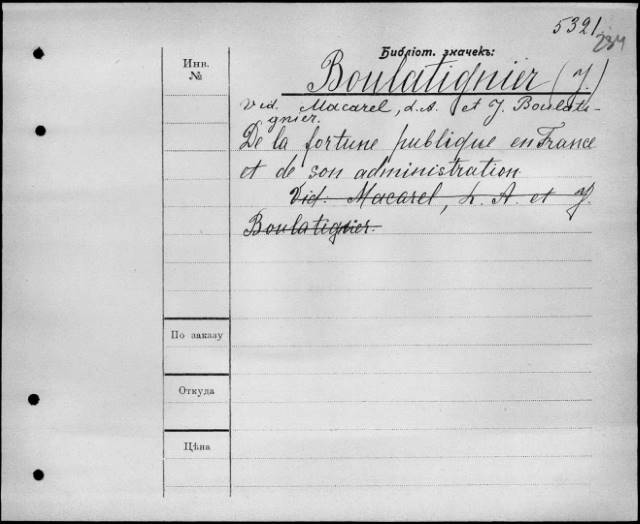 5321
234
Библіот. значекъ:
Инв.
№
Boulatignier (J.
Vid. Macarel, L.A. et J. Boulati-
gnier.
De la fortune publique en France
et de son administration
Vid. Macarel, L. A. et J.
Boulatignier.
По заказу
Откуда
Цѣна